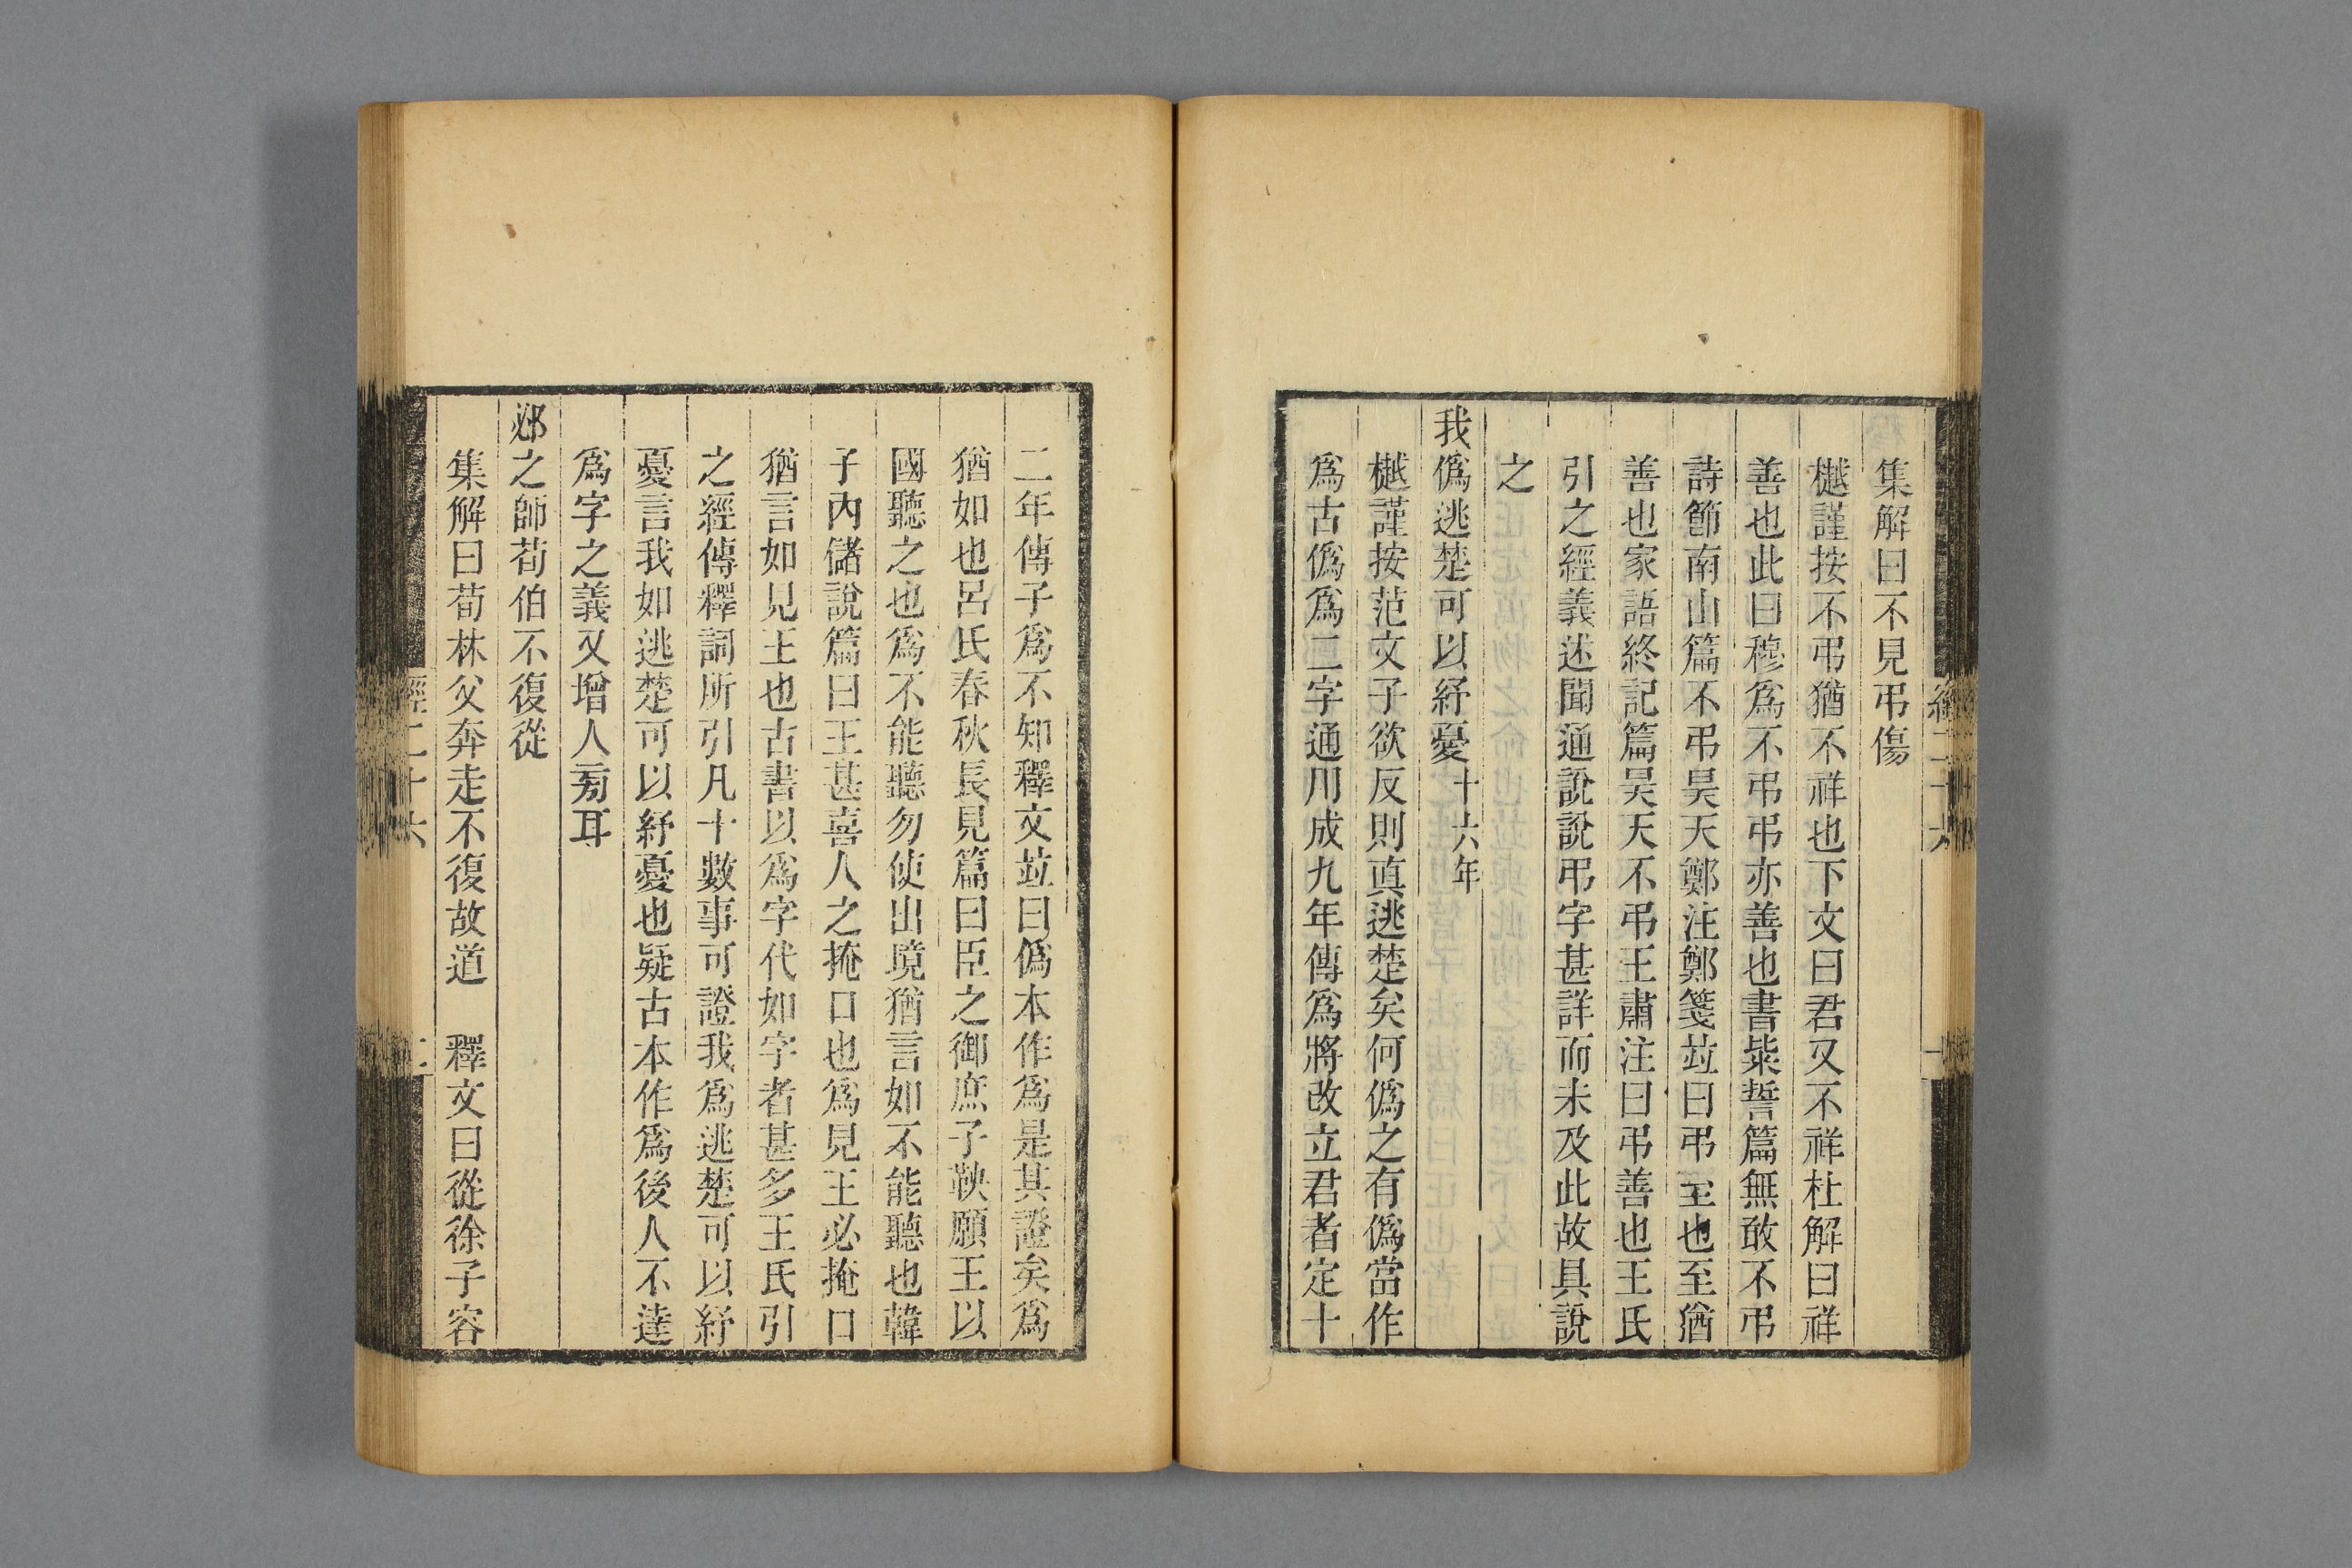 集解曰不見弔傷
樾謹按不弔猶不祥也下文曰君又不祥杜解曰祥
善也此曰穆爲不弔弔亦善也書粊誓篇無敢不弔
詩節南山篇不弔昊天鄭注鄭箋竝曰弔至也至猶
善也家語終記篇昊天不弔王肅注曰弔善也王氏
引之經義述聞通說說弔字甚詳而未及此故具說
之
我僞逃楚可以紓憂十六年
樾謹按范文子欲反則真逃楚矣何僞之有僞當作
爲古僞爲二字通用成九年傳爲將改立君者定十
二年傳子爲不知釋文竝曰僞本作爲是其證矣爲
猶如也呂氏春秋長見篇曰臣之御庶子鞅願王以
國聽之也爲不能聽勿使出境猶言如不能聽也韓
子內儲說篇曰王甚喜人之掩口也爲見王必掩口
猶言如見王也古書以爲字代如字者甚多王氏引
之經傳釋詞所引凡十數事可證我爲逃楚可以紓
憂言我如逃楚可以紓憂也疑古本作爲後人不達
爲字之義又增人㫄耳
邲之師荀伯不復從
集解曰荀林父奔走不復故道　釋文曰從徐子容
經二十六
二